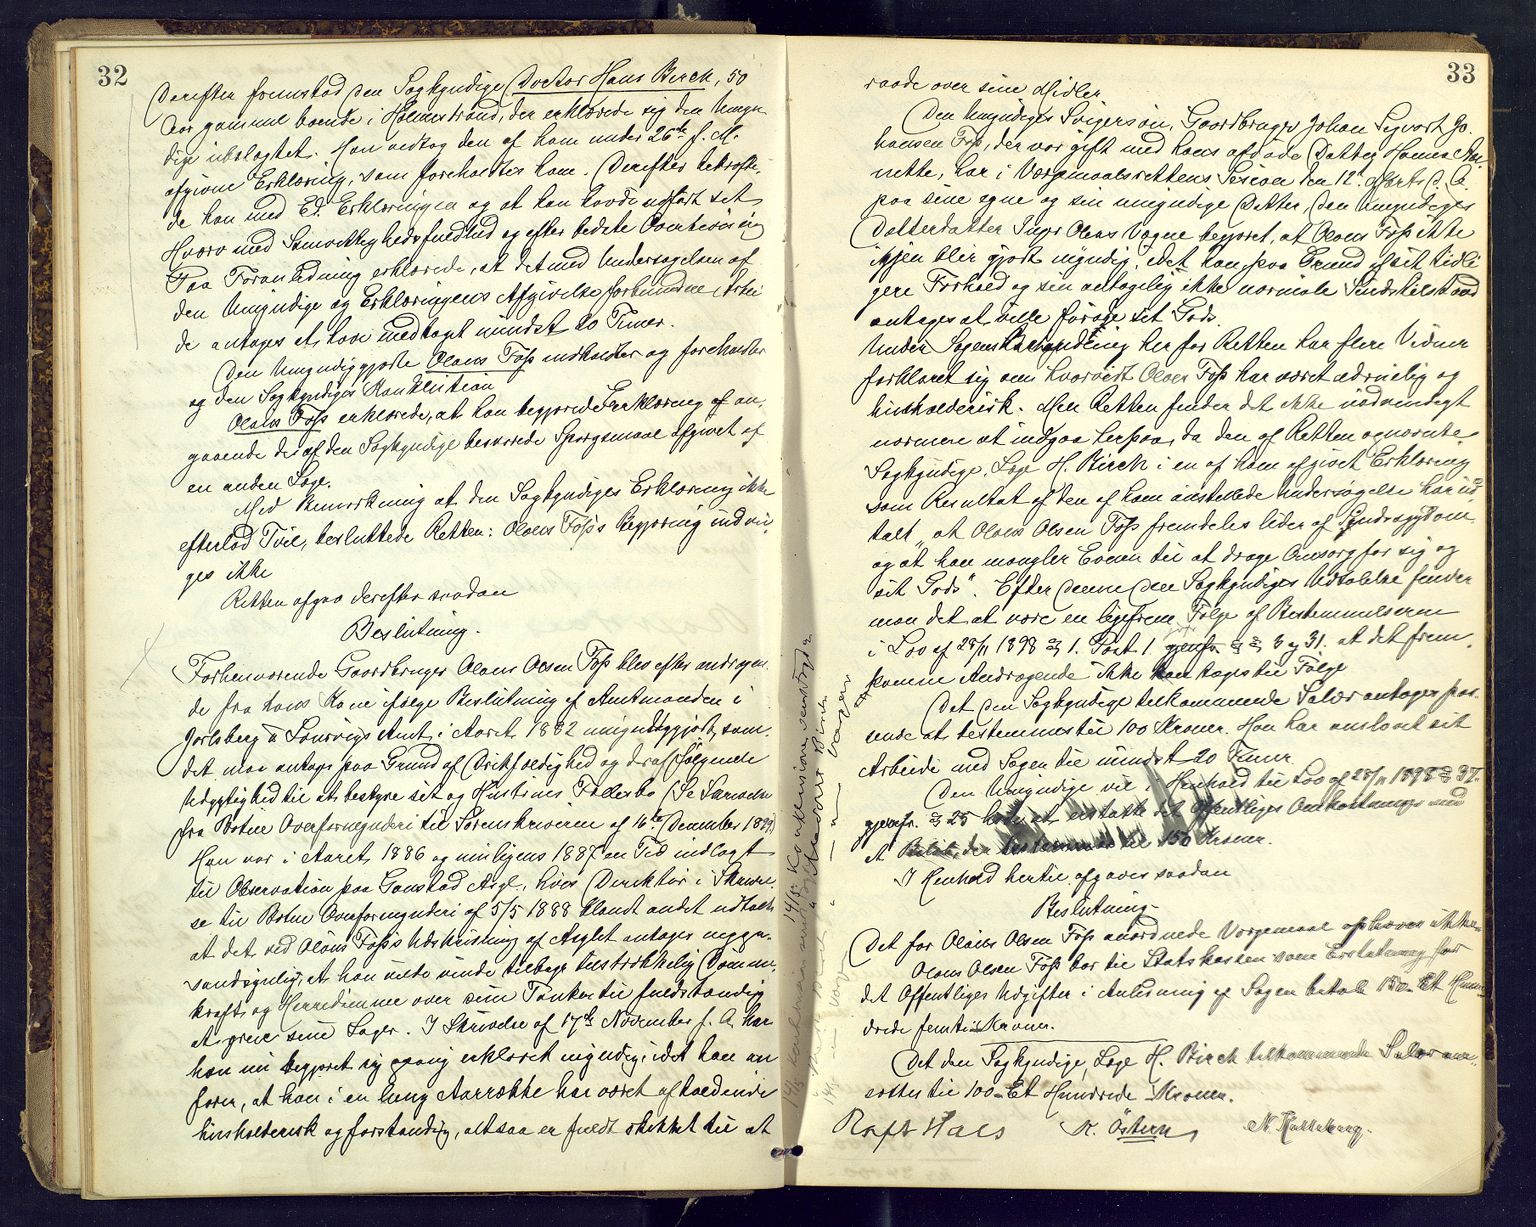 32
Derefter fremstod den Sagkyndige Doctor Hans Birch, 50
Aar gammel boende i Holmestrand, der erklærede sig den Umyn-
dige ubeslægtet. Han vedtog den af ham under 26de f. M.
afgivne Erklæring, som foreholdtes ham. Derefter bekræfte-
de han med Ed. Erklæringen og at han havde udført sit
Hverv med Samvittighedsfuldhed og efter bedste Overbevisning
Paa Foranledning erklærede, at det med Undersøgelsen af
den Umyndige og Erklæringens Afgivelse forbundne Arbei
de antages at have medtaget mindst 20 Timer.
Den Umyndiggjorte Olaus Foss indkaldtes og foreholdtes
og den Sagkyndiges Konklusion
Olaus Foss erklærede, at han begjærer Erklæring af an-
gaaende de af den Sagkyndige besvarede Spørgsmaal afgivet af
en anden Læge.
Med Bemærkning at den Sagkyndiges Erklæring ikke
efterlod Tvil, besluttede Retten: Olaus Foss's Begjæring indvil-
ges ikke
Retten afgav derefter saadan
Beslutning.
Forhenværende Gaardbruger Olaus Olsen Foss blev efter andragen-
de fra hans Kone ifølge Beslutning af Amtmanden i
Jarlsberg & Laurvigs Amt i Aaret 1882 umyndiggjort, som
det maa antages paa Grund af Drikfældighed og deraf følgende
Udygtighed til at bestyre sit og Hustrues Fællesbo (Se Skrivelse
fra Botne Overformynderi til Sorenskriveren af 16de December 1899)
Han var i Aaret 1886 og muligens 1887 en Tid indlagt
til Observation paa Gaustad Asyl, hvis Direktør i Skrivel-
se til Botne Overformynderi af 5/5 1888 blandt andet udtalte
at det ved Olaus Foss's Udskrivning af Asylet antages
usandsynligt, at han vilde vinde tilbage tilstrækkelig Dømme-
kraft og Herredømme over sine Tanker til fuldstændig
at greie sine Sager. I Skrivelse af 17de November f. A. har
han nu begjæret sig paany erklæret myndig, idet han an-
fører, at han i en lang Aarrække har været afholdende
husholderisk og forstandig, altsaa er fuldt skikket til at
14/5 Konklusion
33
raade over sine Midler
Den Umyndiges Svigersøn, Gaardbruger Johan Sigvart Jo-
hansen Foss, der var gift med hans afdøde Datter Hanna
nette, har i Værgemaalsrettens Session den 12te Marts d. A.
paa sine egne og sin umyndige Datter, den Umyndiges
Datterdatter Inger Olaus Vegne begjæret, at Olaus Foss ikke
igjen blir gjort myndig, idet han paa Grund af sit tidli
gere Forhold og sin antagelig ikke normale Sindstilstand
antages at ville forøde sit Gods.
Under Sagens Behandling her for Retten har flere Vidner
forklaret sig om hvorvidt Olaus Foss har været ædruelig og
husholderisk. Men Retten finder det ikke nødvendigt
nærmere at indgaa herpaa, da den af Retten opnævnte
Sagkyndige, Læge H. Birch i en af ham afgivet Erklæring
som Resultat af den af ham anstillede Undersøgelse har ud-
talt „at Olaus Olsen Foss fremdeles lider af Sindssygdom
og at han mangler Evnen til at drage Omsorg for sig og
sit Gods". Efter denne den Sagkyndiges Udtalelse finder
man det at være en ligefrem Følge af Bestemmelserne
i Lov af 28/11 1898 § 1. Post 1. jevnfr. §§ 3 og 31. at det frem-
komne Andragende ikke kan tages til Følge
Det den Sagkyndige tilkommende Salær antages pas-
sende at bestemmes til 100 Kroner. Han har anslaaet sit
Arbeide med Sagen til mindst 20 Timer.
Den Umyndige vil i Henhold til Lov af 28/11 1898 § 37.
jevnfr. § 25 have at erstatte det Offentliges Omkostninger med
et Beløb, der bestemmes til 150 Kroner.
I Henhold hertil afgaves saadan
Beslutning.
Det for Olaus Olsen Foss anordnede Værgemaal ophæves ikke.
Olaus Olsen Foss bør til Statskassen som Erstatning for
det Offentliges Udgifter i Anledning af Sagen betale 150 - Et Hun-
drede femti - Kroner.
Det den Sagkyndige, Læge H. Birch tilkommende Salær an-
sættes til 100 - Et Hundrede Kroner.
Rolf Hals K. Østern N. Kultaberg.